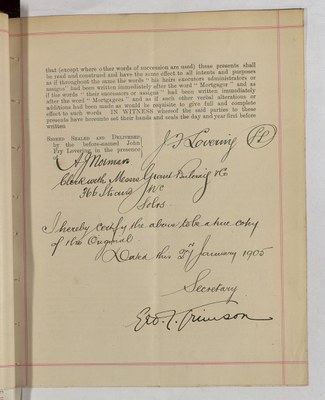 that (except where other words of succession are used) these presents shall
be read and construed and have the same effect to all intents and purposes
as if throughout the same the words "his heirs executors administrators or
assigns" had been written immediately after the word "Mortgagor" and as
if the words "their successors or assigns" had been written immediately
after the word "Mortgagees" and as if such other verbal alterations or
additions had been made as would be requisite to give full and complete
effect to such words IN WITNESS whereof the said parties to these
presents have hereunto set their hands and seals the day and year first before
written
SIGNED SEALED AND DELIVERED
by the before-named John
Fry Lovering in the presence
of
J F Lovering
A J Norman
Clerk with Messrs
366 Strand WC
Solrs
I hereby certify the above to be a true copy
of the Original
Dated this January 1905
Secretary